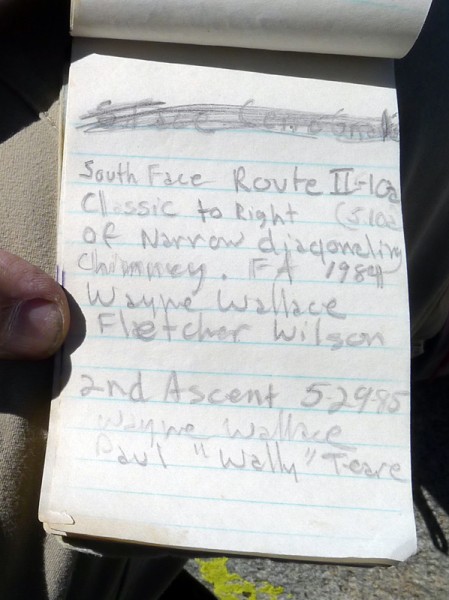 South Face Route II-10a
Classic to Right (5.10a
of Narrow diagonaling
Chimney. FA 1984
Wayne Wallace
Fletcher Wilson
2nd Ascent 5-29-95
Wayne Wallace
Paul "Wally" Teare